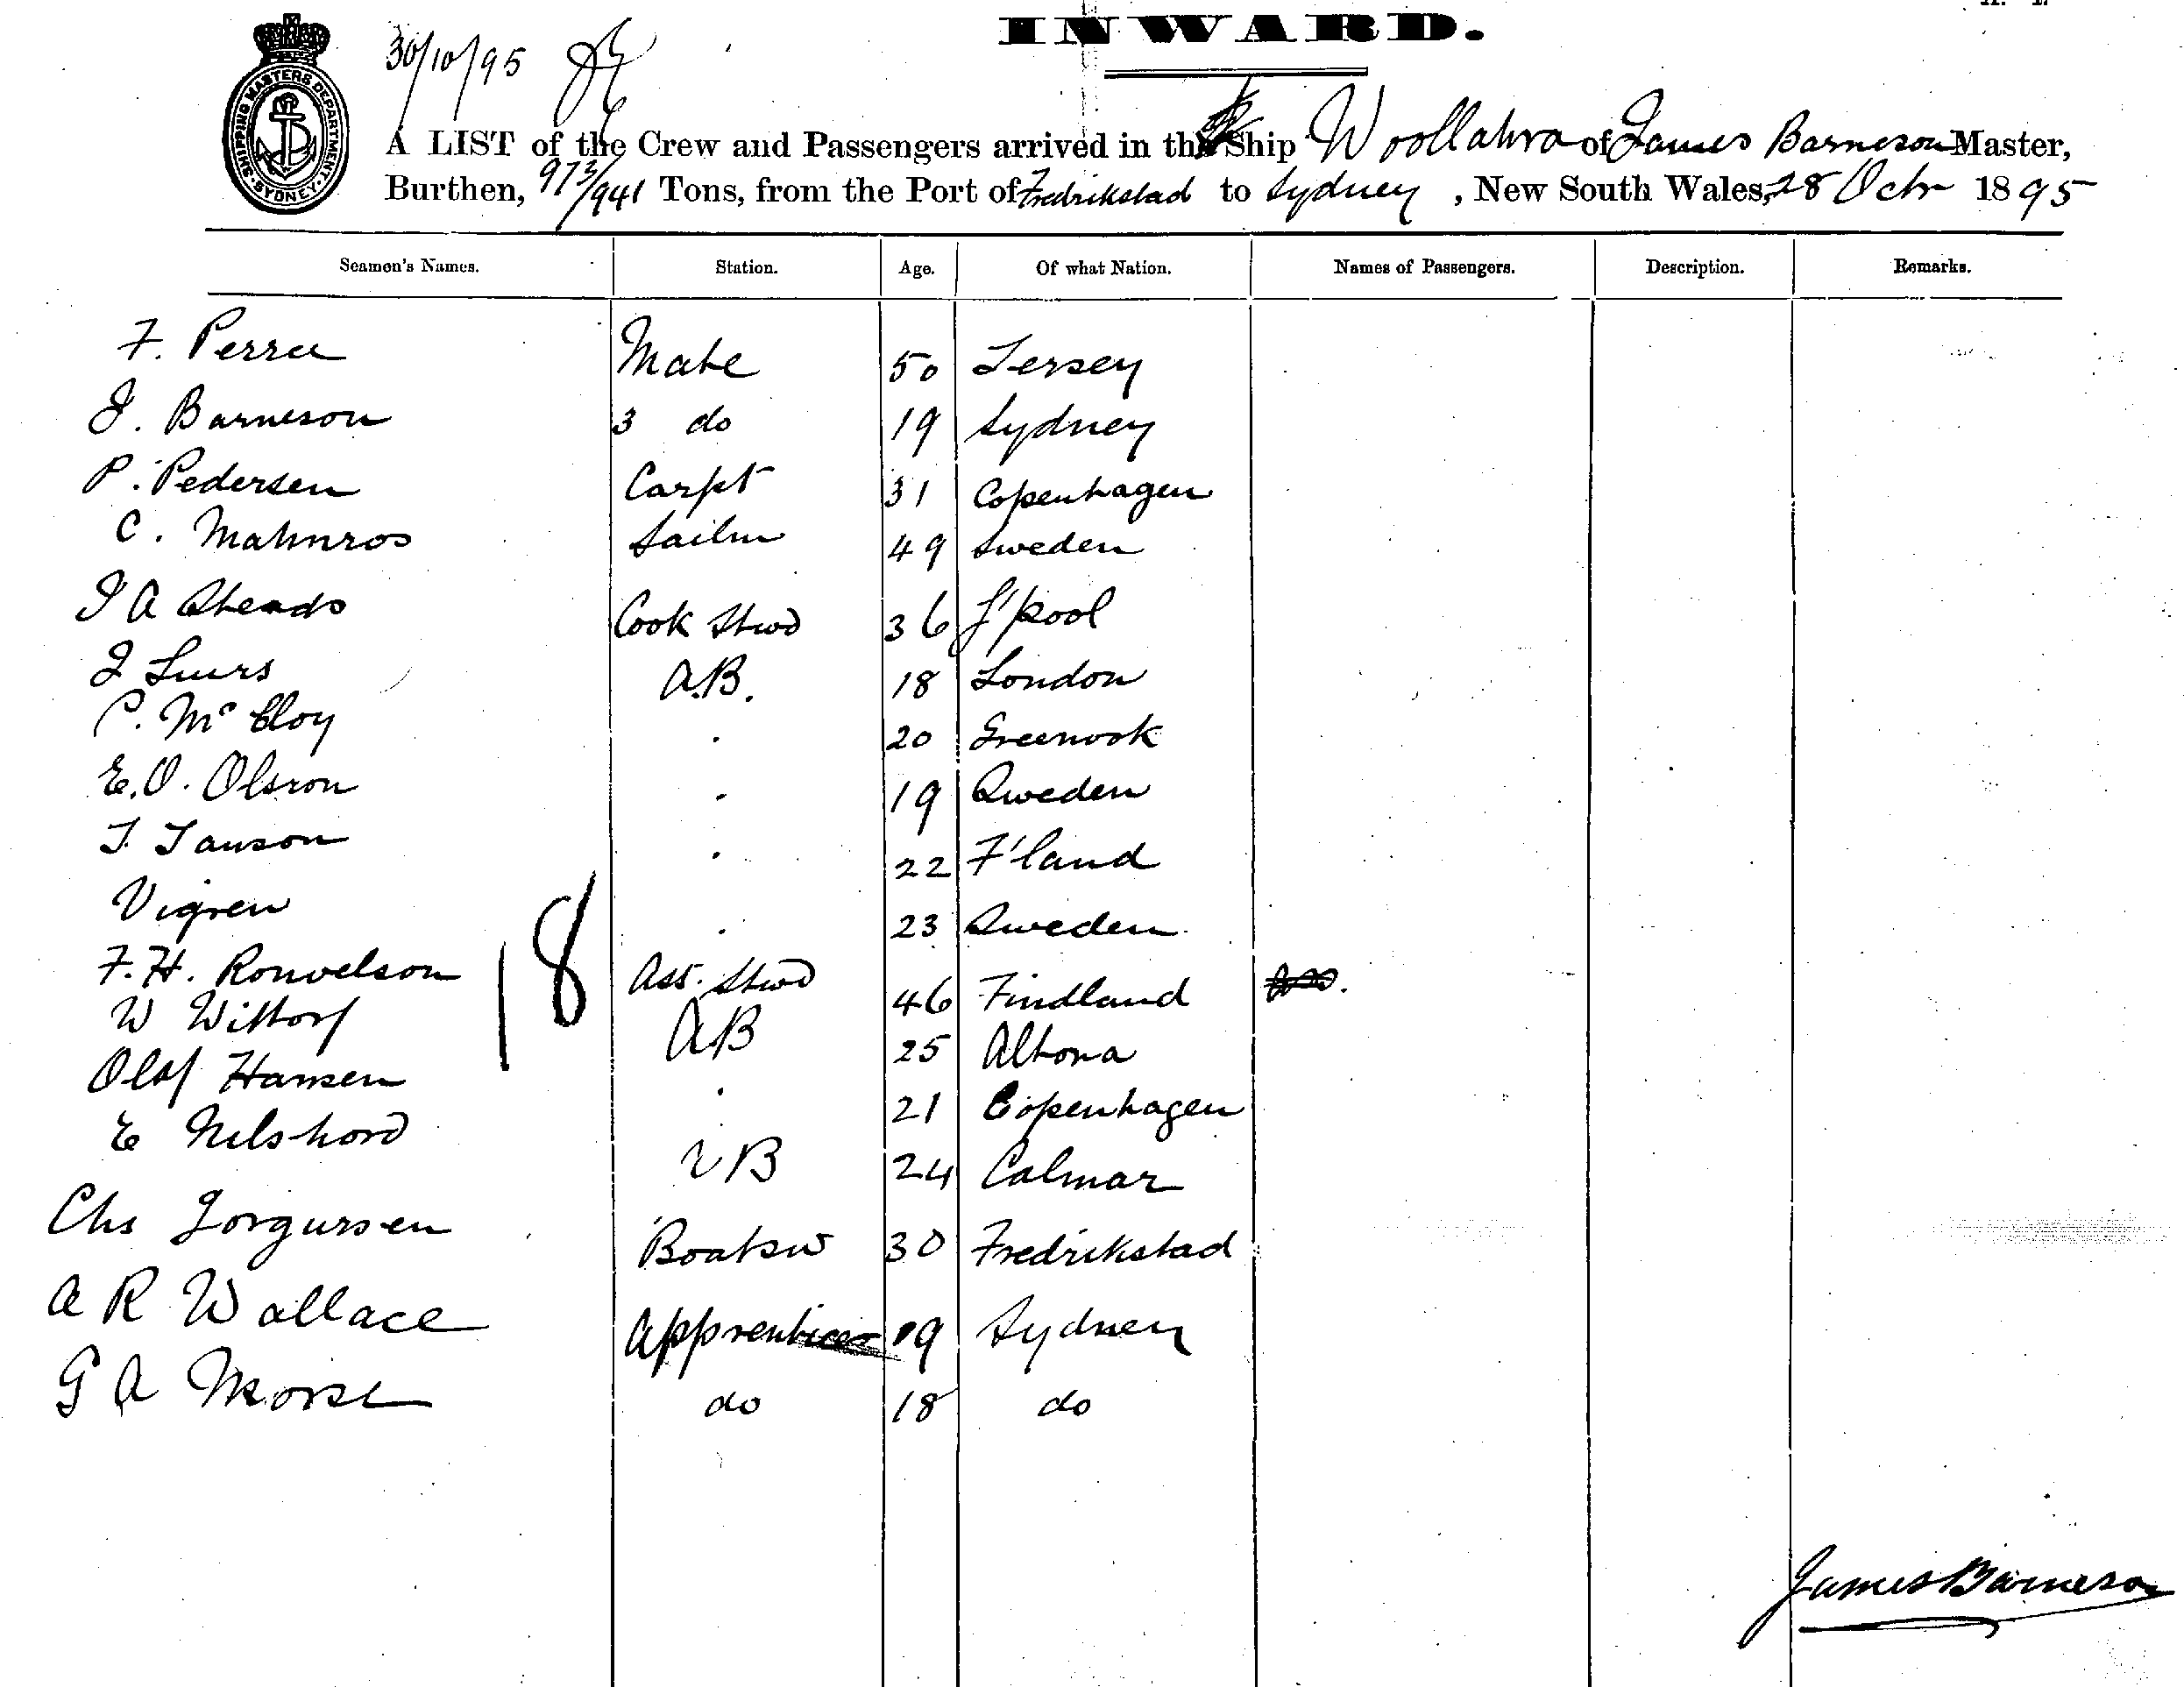 INWARD.
30/10/95
SHIPPING MASTERS DEPARTMENT. SYDNEY.
A LIST of the Crew and Passengers arrived in the Ship Woollahra of James Barneson Master,
Burthen, 973/941 Tons, from the Port of Fredrikstad to Sydney, New South Wales, 28 Octr 1895
Seamen's Names. Station. Age. Of what Nation. Names of Passengers. Description. Remarks.
F. Perree Mate 50 Jersey
J. Barneson 3 do 19 Sydney
P. Pedersen Carpt 31 Copenhagen
C. Mahnros Sailm 49 Sweden
J A Sheads Cook Stwd 36 L'pool
J Luurs A.B. 18 London
C. McElroy 20 Greenock
E. O. Olsson 19 Sweden
J. Janson 22 F'land
Vigren 23 Sweden
F. H. Ronvelson Ass. Stwd 46 Findland
W Wittorf AB 25 Altona
Olaf Hansen 21 Copenhagen
E Nilshord AB 24 Calmar
Chs Jorgursen Boatsw 30 Fredrikstad
A R Wallace Apprentices 19 Sydney
G A Morse do 18 do
18
James Barneson